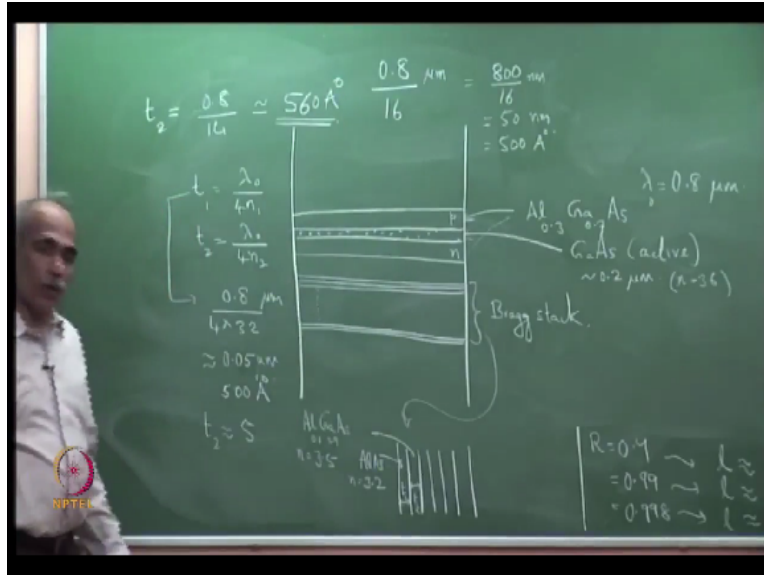 t₂ = 0.8/14 ≃ 560 A° 0.8/16 μm = 800/16 nm
= 50 nm
= 500 A°
t₁ = λ₀/4n₁
t₂ = λ₀/4n₂
0.8/4×3.2 μm
≈ 0.05 μm
500 A°
t₂ ≈ 5
p
n
λ₀ = 0.8 μm
Al₀.₃ Ga₀.₇ As
GaAs (active)
~ 0.2 μm (n~3.6)
Bragg stack
AlGaAs
n=3.5
AlAs
n=3.2
t₁ t₂
R = 0.4 → l ≈
= 0.99 → l ≈
= 0.998 → l ≈
NPTEL